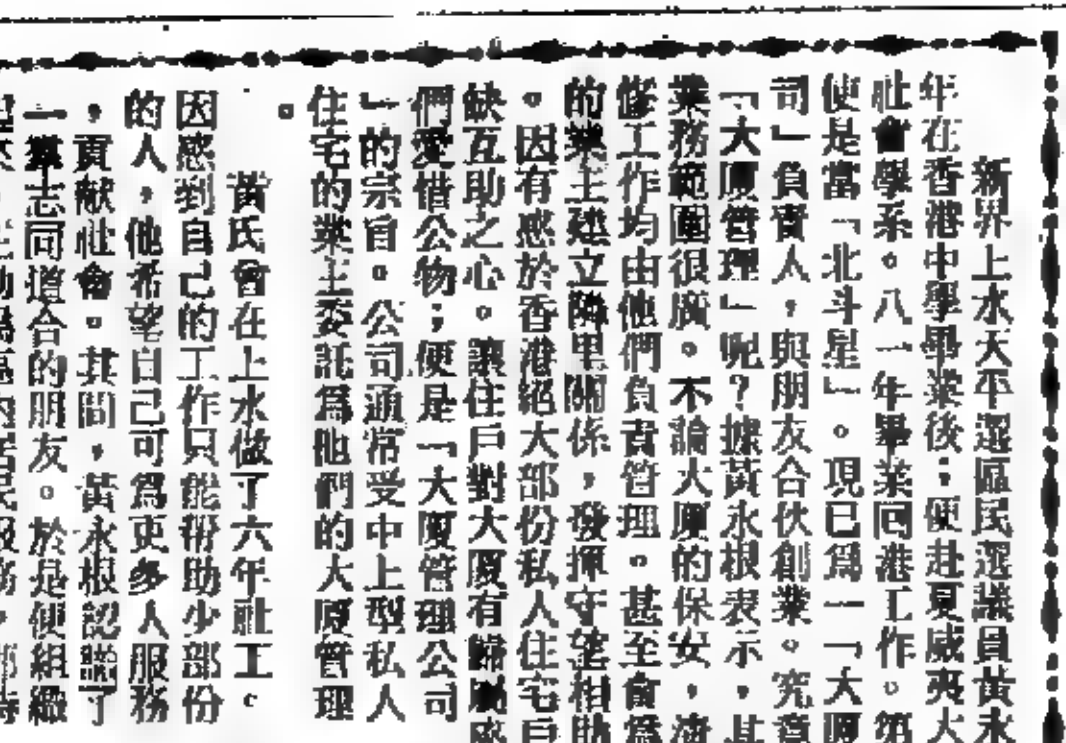 新界上水天平選區民選議員黃永
年在香港中學畢業後；便赴夏威夷大
社會學系。八一年畢業回港工作。第
便是當「北斗星」。現已爲一「大厦
司」負責人，與朋友合伙創業。究竟
「大厦管理」呢？據黃永根表示，其
業務範圍很廣。不論大厦的保安，清
修工作均由他們負責管理。甚至會爲
的業主建立隣里關係，發揮守望相助
。因有感於香港絕大部份私人住宅戶
缺互助之心。讓住戶對大厦有歸屬感
們愛惜公物；便是「大厦管理公司
」的宗旨。公司通常受中上型私人
住宅的業主委託爲他們的大厦管理
。
黃氏曾在上水做了六年社工。
因感到自己的工作只能幫助少部份
的人，他希望自己可爲更多人服務
，貢献社會。其間，黃永根認識了
一羣志同道合的朋友。於是便組織